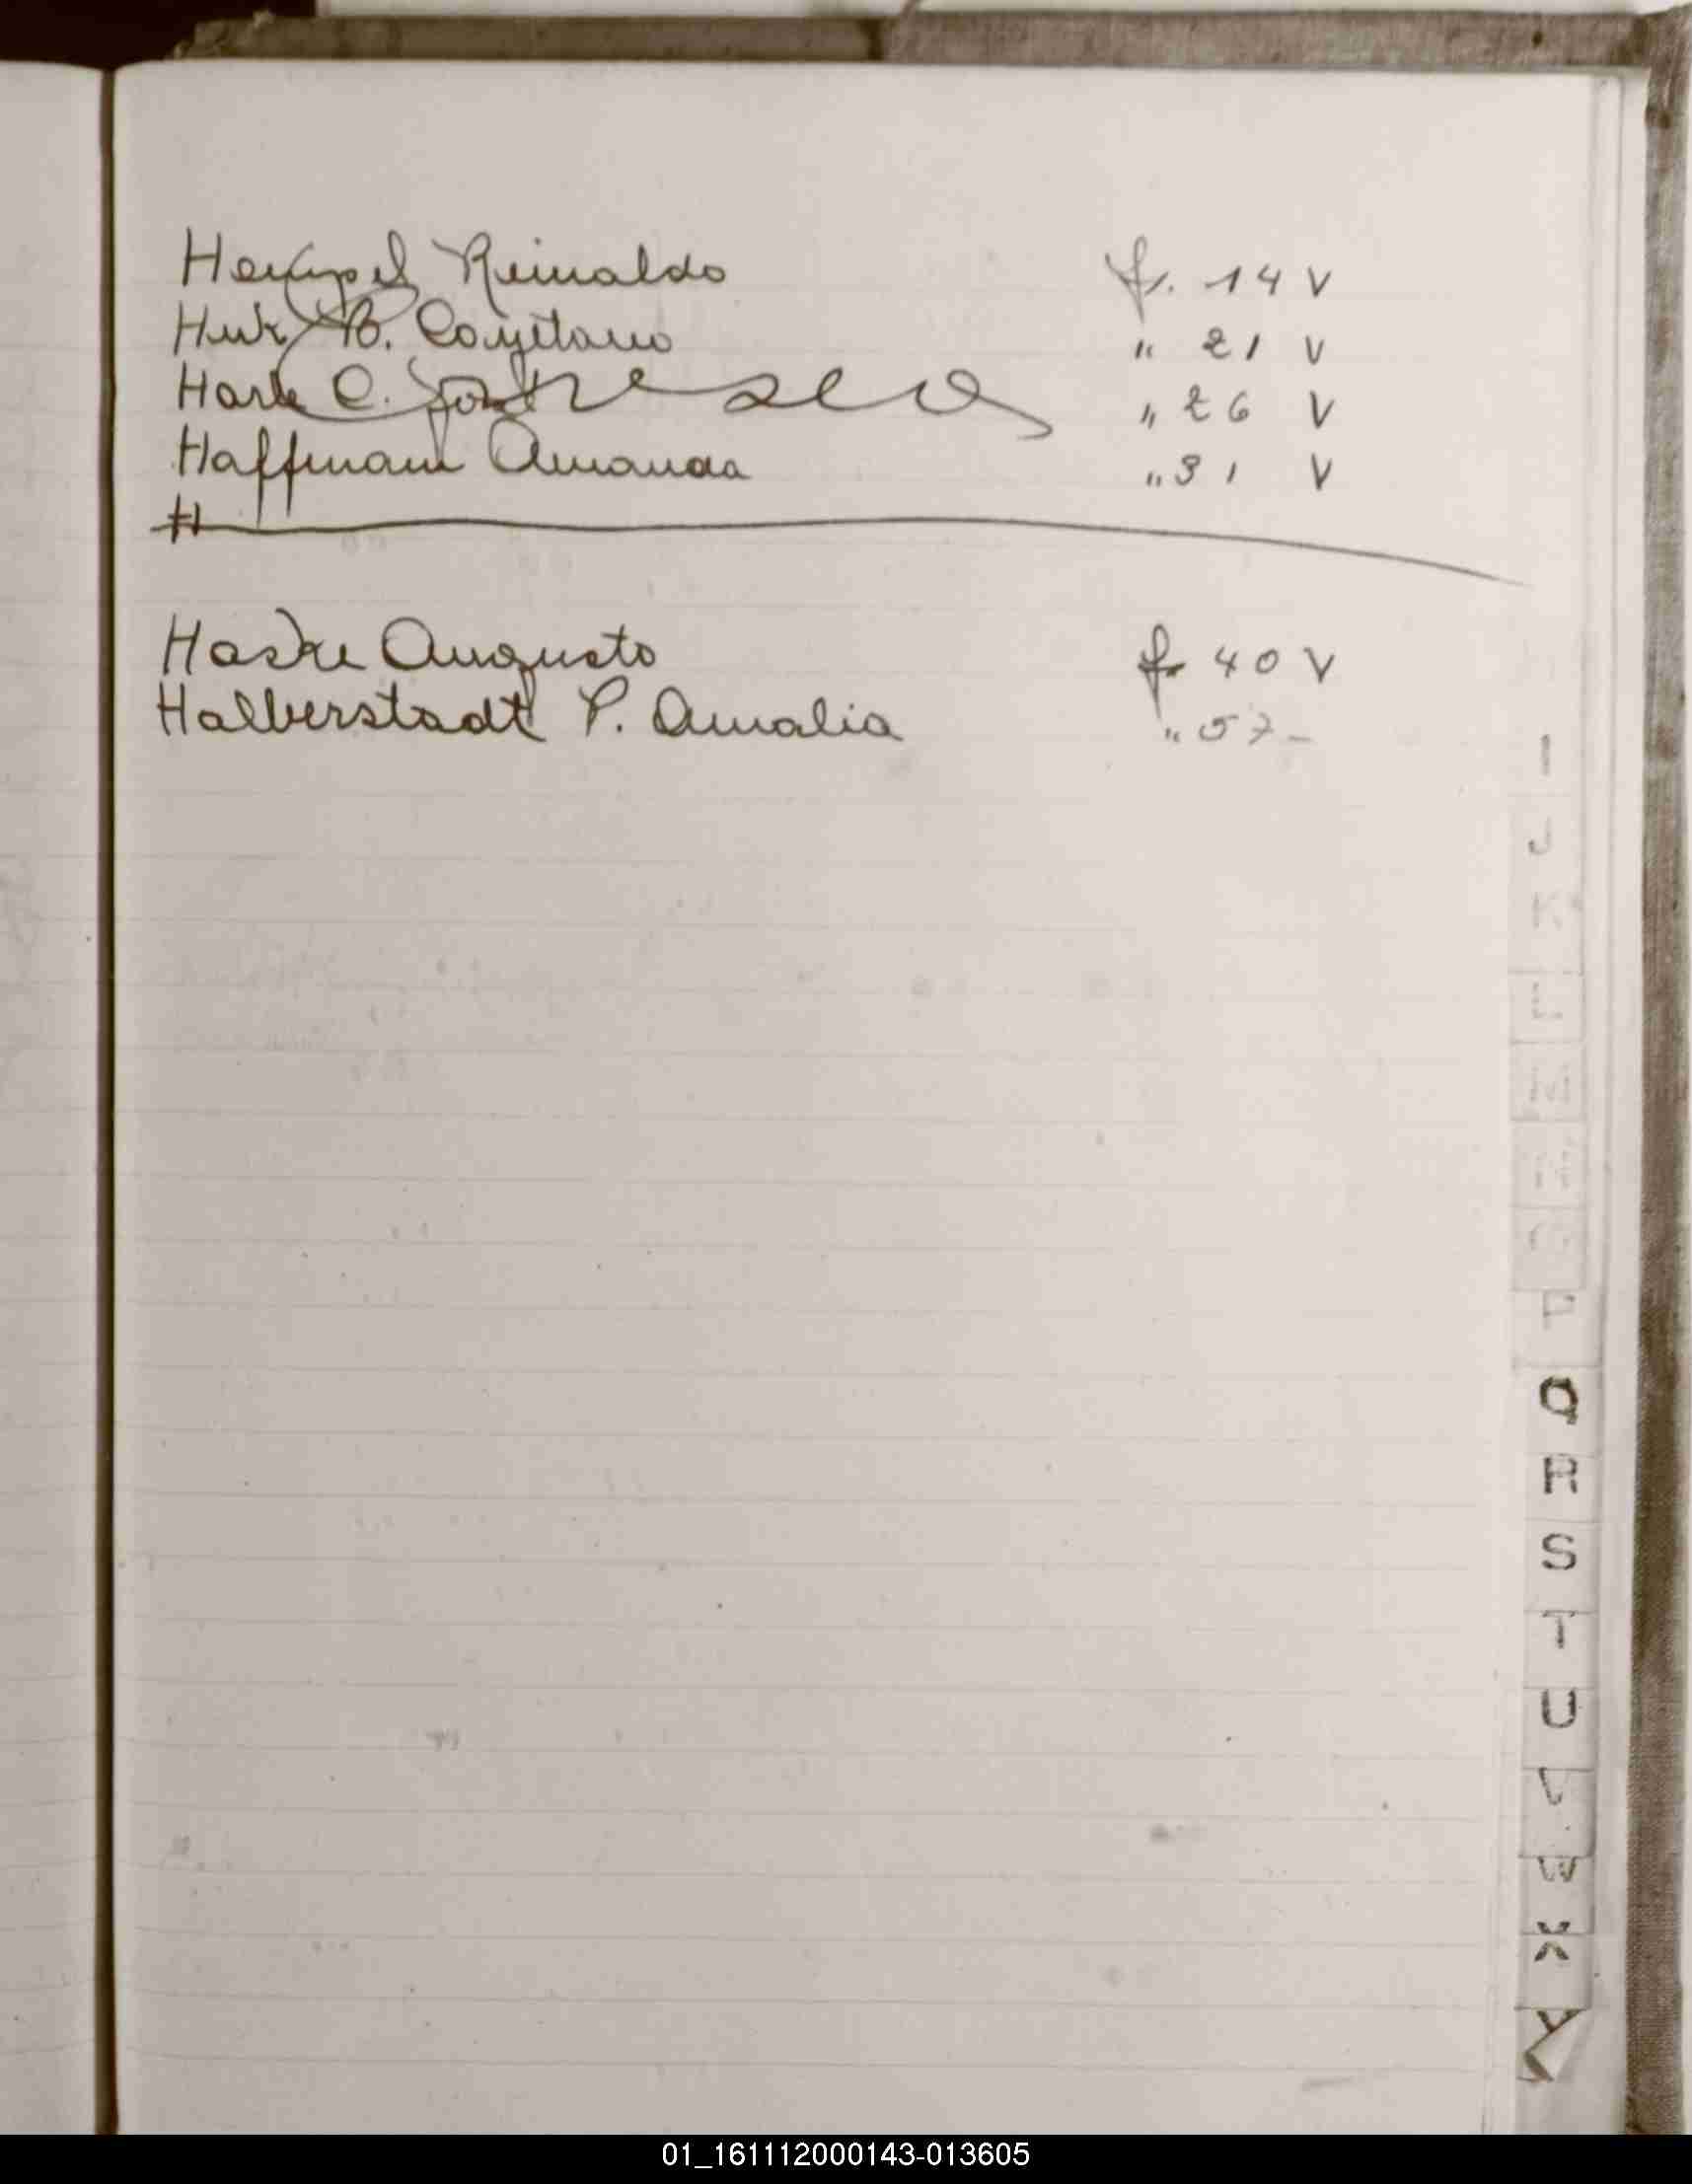 Hempel Reinaldo fs. 14 V
Huk B. Cayetano " 21 V
Harle C. José " 26 V
Haffmann Amanda " 31 V
H
Haske Augusto fs 40 V
Halberstadt P. Amalia " 57 -
I
J
K
Q
R
S
T
U
V
W
X
Y
01_161112000143-013605